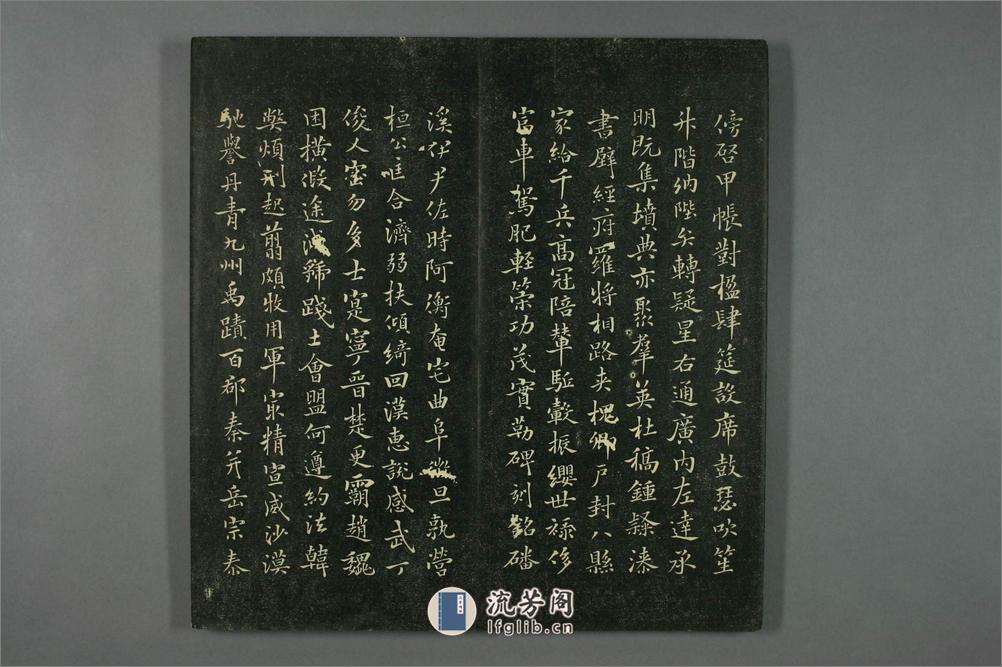 傍啓甲帳對楹肆筵設席鼓瑟吹笙
升階納陛弁轉疑星右通廣內左達承
明既集墳典亦聚羣英杜稿鍾隸漆
書壁經府羅將相路夾槐卿戶封八縣
家給千兵高冠陪輦驅轂振纓世祿侈
富車駕肥輕策功茂實勒碑刻銘磻
溪伊尹佐時阿衡奄宅曲阜微旦孰營
桓公匡合濟弱扶傾綺回漢惠說感武丁
俊乂密勿多士寔寧晉楚更霸趙魏
困橫假途滅虢踐土會盟何遵約法韓
弊煩刑起翦頗牧用軍最精宣威沙漠
馳譽丹青九州禹蹟百郡秦并岳宗泰
流芳阁
lfglib.cn